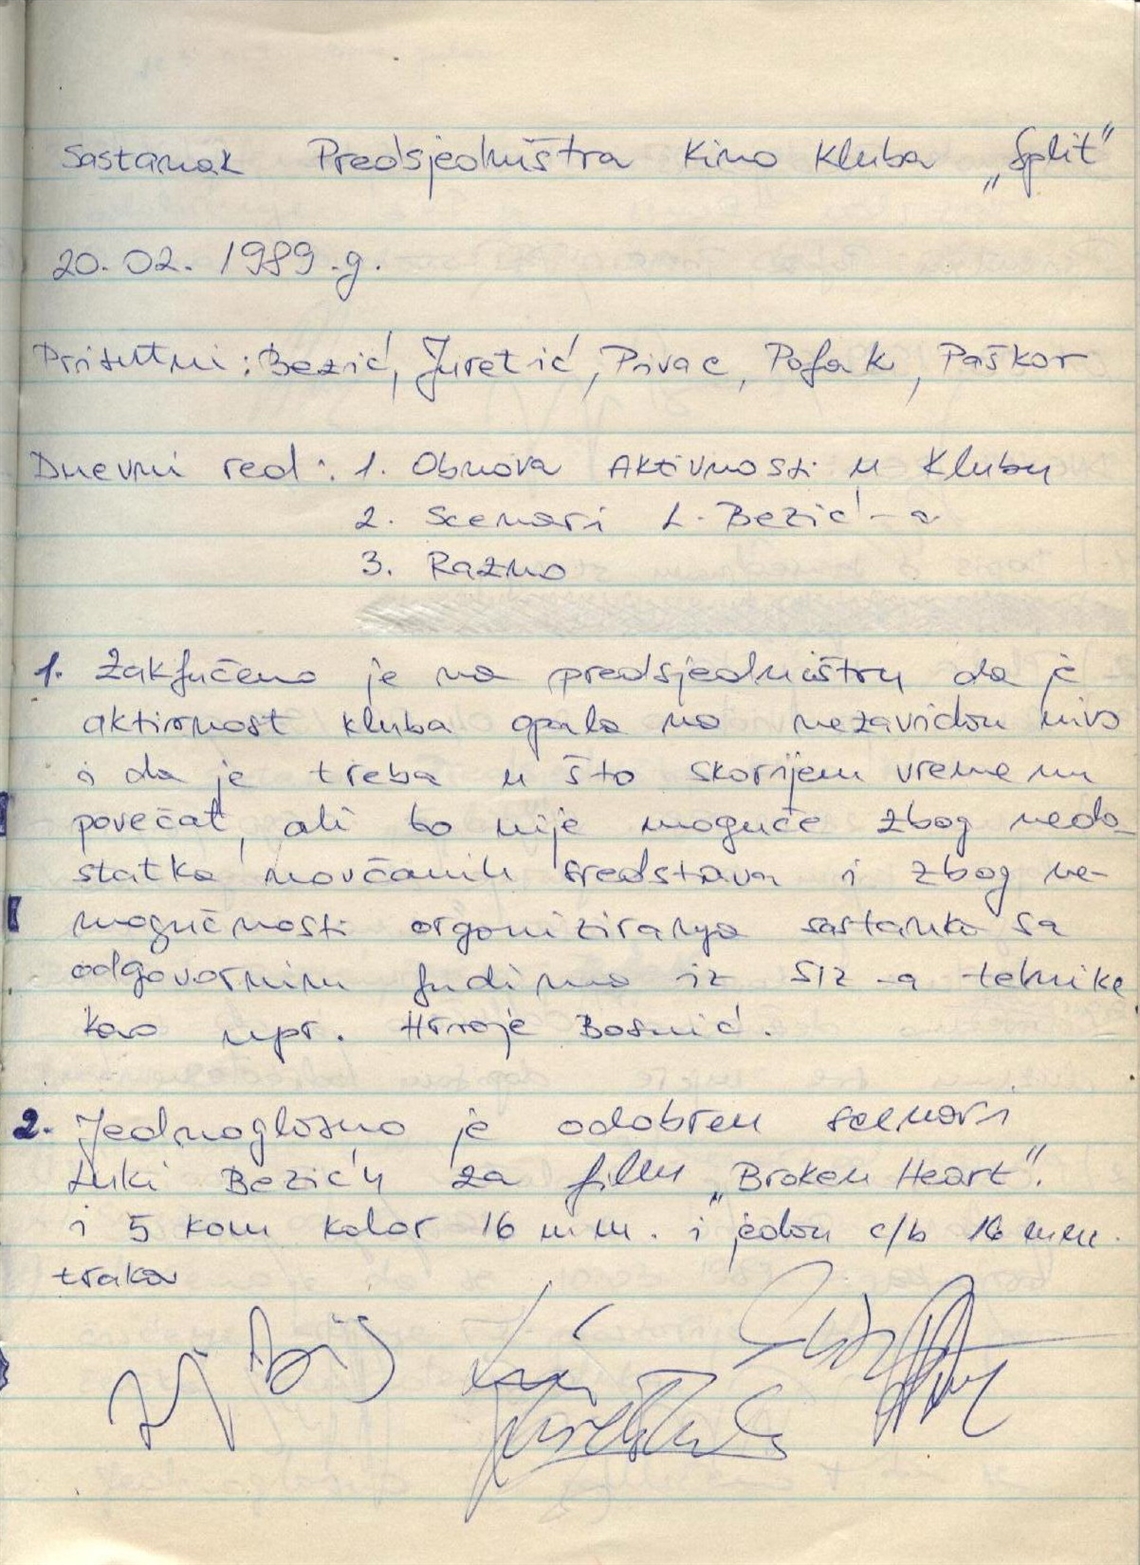 Sastanak Predsjedništva Kino Kluba „Split"
20. 02. 1989. g.
Prisutni: Bezić, Juretić, Privac, Poljak, Paškov
Dnevni red: 1. Obnova Aktivnosti u Klubu
2. Scenari L. Bezić-a
3. Razno
1. Zaključeno je na predsjedništvu da je
aktivnost kluba opala na nezavidan nivo
i da je treba u što skorijem vremenu
povečat, ali to nije moguče zbog nedo-
statka novčanih sredstava i zbog ne-
mogučnosti organiziranja sastanka sa
odgovornim ljudima iz SIZ-a tehnike
kao npr. Hrvoje Bosnić.
2. Jednoglasno je odobren scenari
Luki Beziću za film „Broken Heart".
i 5 kom kolor 16 mm. i jedan c/b 16 mm.
traka